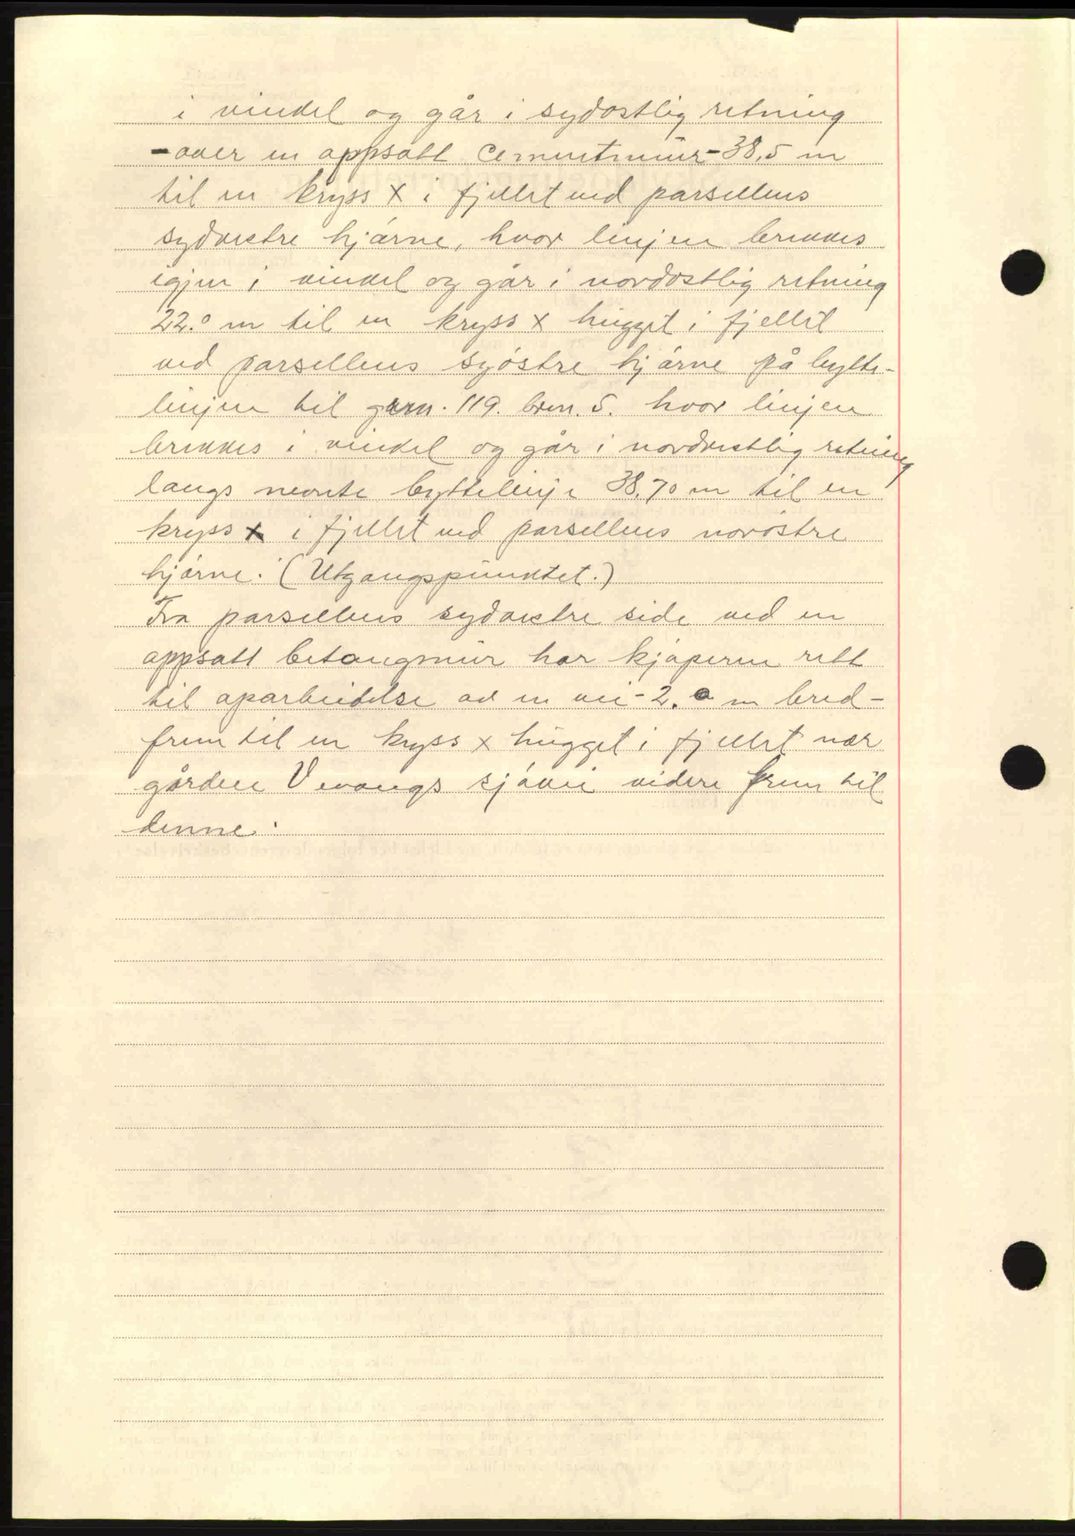 i vinkel og går i sydostlig retning
- over en oppsatt Cementmur - 38,5 m
til en kryss x i fjellet ved parsellens
sydvestre hjørne, hvor linjen brekkes
igjen i vinkel og går i nordostlig retning
22.0 m til en kryss x hugget i fjellet
ved parsellens syöstre hjørne på bytte-
linjen til grn. 119. brn. 5. hvor linjen
brekkes i vinkel og går i nordvestlig retning
langs nevnte byttelinje 38.70 m til en
kryss x i fjellet ved parsellens norøstre
hjørne. (Utgangspunktet.)
Fra parsellens sydvestre side ved en
oppsatt betongmur har kjøperne rett
til oparbeidelse av en vei - 2.0 m bred -
frem til en kryss x hugget i fjellet nær
gården Vevangs sjøvei videre frem til
denne.